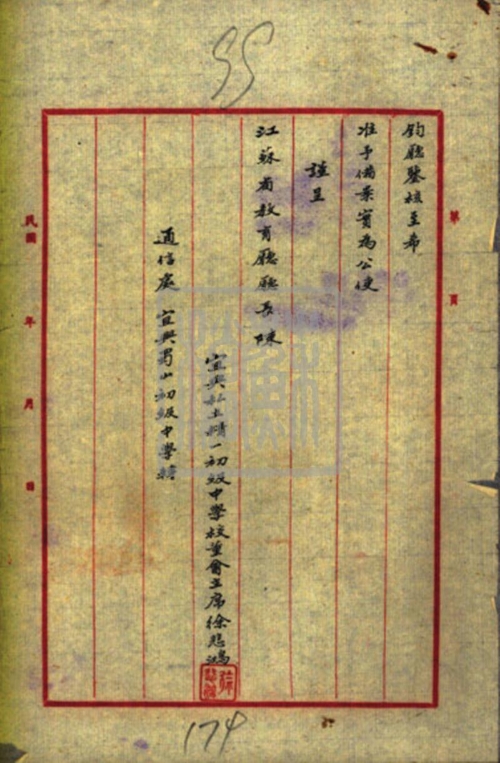 第 頁
鈞廳鑒核至希
准予備案實為公便
謹呈
江蘇省教育廳廳長陳
宜興私立精一初級中學校董會主席徐悲鴻
通信處 宜興蜀山初級中學轉
民國 年 月 日
174